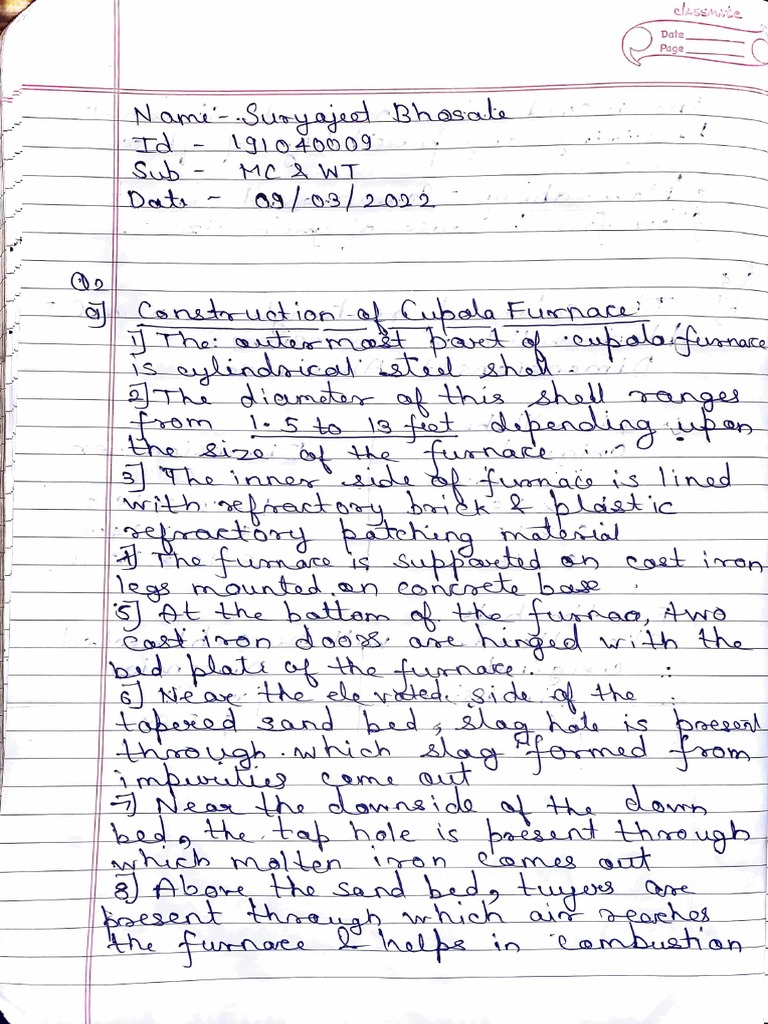 classmate
Date
Page
Name - Suryajeet Bhosale
Id - 191040009
Sub - MC & WT
Date - 09/03/2022
Q2
a] Construction of Cupola Furnace:
1] The outermost part of cupola furnace
is cylindrical steel shell.
2] The diameter of this shell ranges
from 1.5 to 13 feet depending upon
the size of the furnace
3] The inner side of furnace is lined
with refractory brick & plastic
refractory patching material
4] The furnace is supported on cast iron
legs mounted on concrete base.
5] At the bottom of the furnac, two
cast iron doors are hinged with the
bed plate of the furnace.
6] Near the elevated side of the
tapered sand bed, slag hole is present
through which slag formed from
impurities come out
7] Near the downside of the down
bed, the tap hole is present through
which molten iron comes out
8] Above the sand bed, tuyers are
present through which air reaches
the furnace & helps in combustion